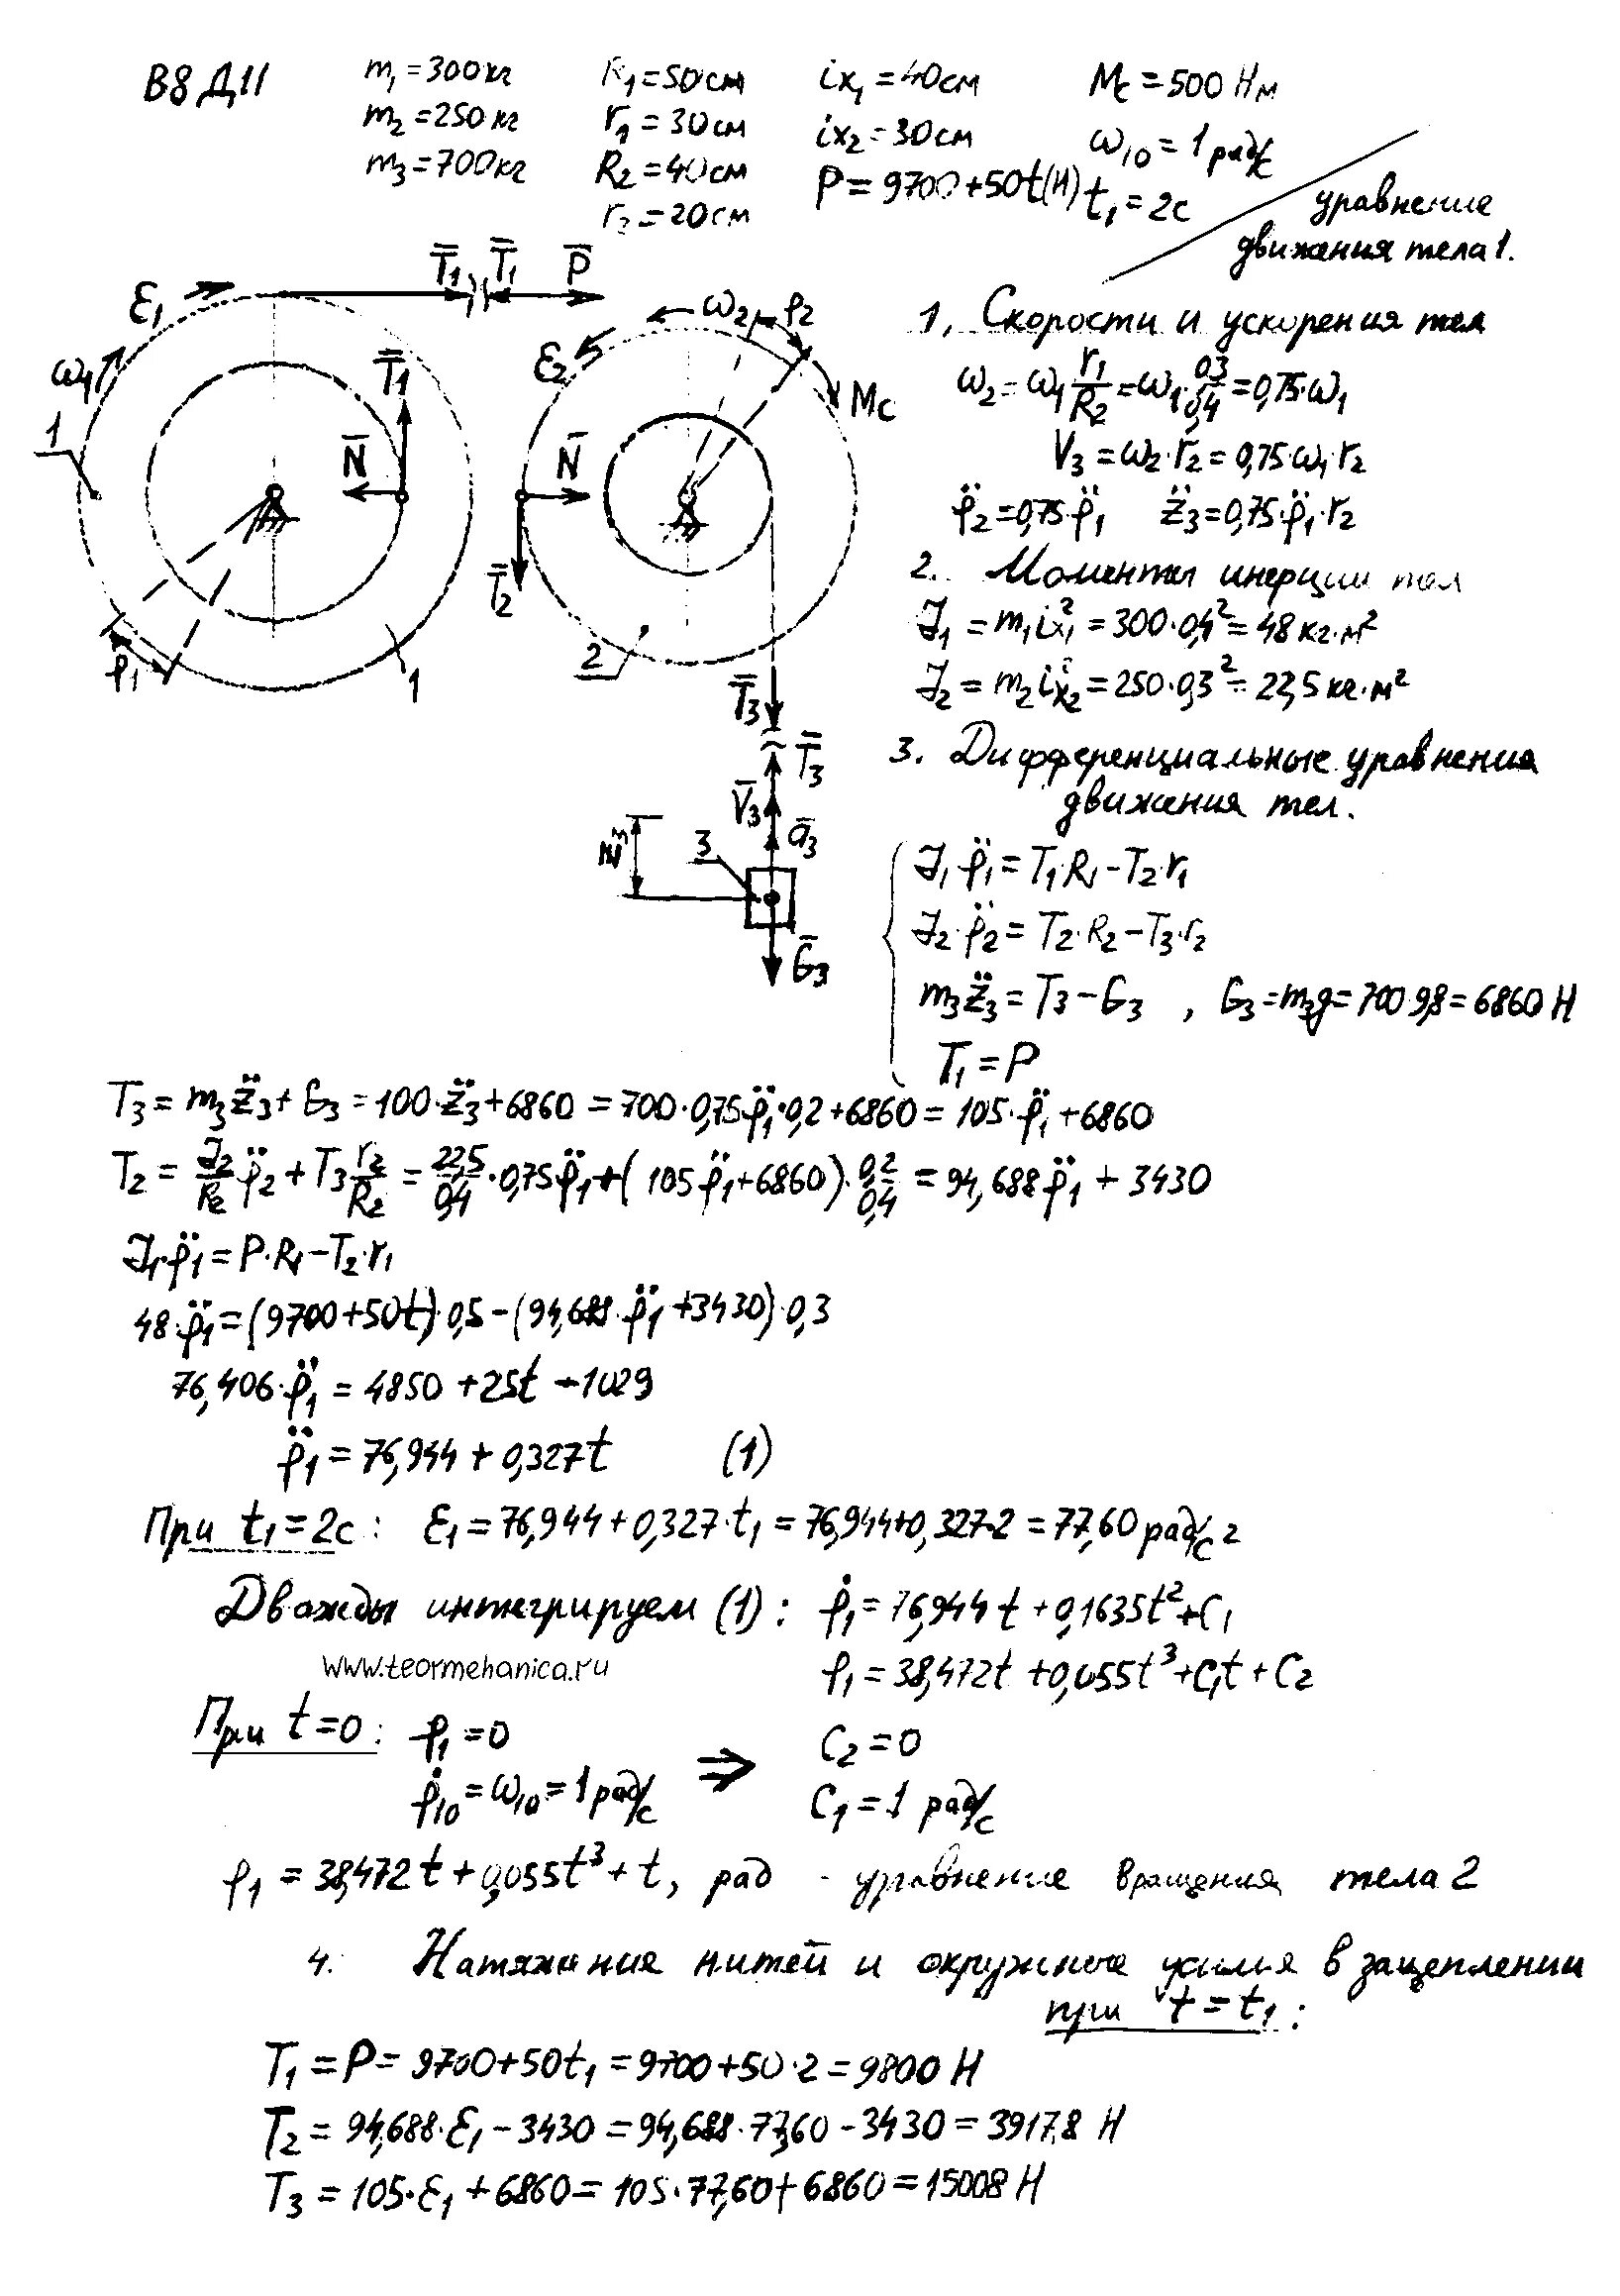 В8 Д11
m₁=300кг R₁=50см ix₁=40см Mc=500 Нм
m₂=250кг r₁=30см ix₂=30см ω₁₀=1 рад/с
m₃=700кг R₂=40см P=9700+50t(Н) t₁=2с
r₂=20см
уравнение
движения тела 1.
T̄₁ T̄₁ P̄
ε₁ ω₁ T̄₁ N̄ 1 φ₁ 1
ω₂ φ₂ ε₂ Mc N̄ T̄₂ 2
T̄₃
T̄₃
V̄₃ ā₃
z₃ 3
Ḡ₃
1. Скорости и ускорения тел
ω₂=ω₁ r₁/R₂=ω₁·0,3/0,4=0,75·ω₁
V₃=ω₂·r₂=0,75·ω₁·r₂
φ̈₂=0,75·φ̈₁ z̈₃=0,75·φ̈₁·r₂
2. Моменты инерции тел
J₁=m₁ix₁²=300·0,4²=48кг·м²
J₂=m₂ix₂²=250·0,3²=22,5кг·м²
3. Дифференциальные уравнения
движения тел.
J₁·φ̈₁=T₁·R₁−T₂·r₁
J₂·φ̈₂=T₂·R₂−T₃·r₂
m₃z̈₃=T₃−G₃ , G₃=m₃g=700·9,8=6860 Н
T₁=P
T₃=m₃z̈₃+G₃=100·z̈₃+6860=700·0,75φ̈₁·0,2+6860=105·φ̈₁+6860
T₂=J₂/R₂ φ̈₂+T₃ r₂/R₂=22,5/0,4·0,75φ̈₁+(105φ̈₁+6860)·0,2/0,4=94,688φ̈₁+3430
J₁·φ̈₁=P·R₁−T₂·r₁
48·φ̈₁=(9700+50t)·0,5−(94,688·φ̈₁+3430)·0,3
76,406·φ̈₁=4850+25t−1029
φ̈₁=76,944+0,327t (1)
При t₁=2с: ε₁=76,944+0,327·t₁=76,944+0,327·2=77,60 рад/с²
Дважды интегрируем (1): φ̇₁=76,944t+0,1635t²+C₁
www.teormehanica.ru
φ₁=38,472t+0,055t³+C₁t+C₂
При t=0: φ₁=0 C₂=0
φ̇₁₀=ω₁₀=1 рад/с ⇒ C₁=1 рад/с
φ₁=38,472t+0,055t³+t, рад - уравнение вращения тела 2
4. Натяжение нитей и окружное усилия в зацеплении
при t=t₁:
T₁=P=9700+50t₁=9700+50·2=9800 Н
T₂=94,688·ε₁−3430=94,688·77,60−3430=3917,8 Н
T₃=105·ε₁+6860=105·77,60+6860=15008 Н